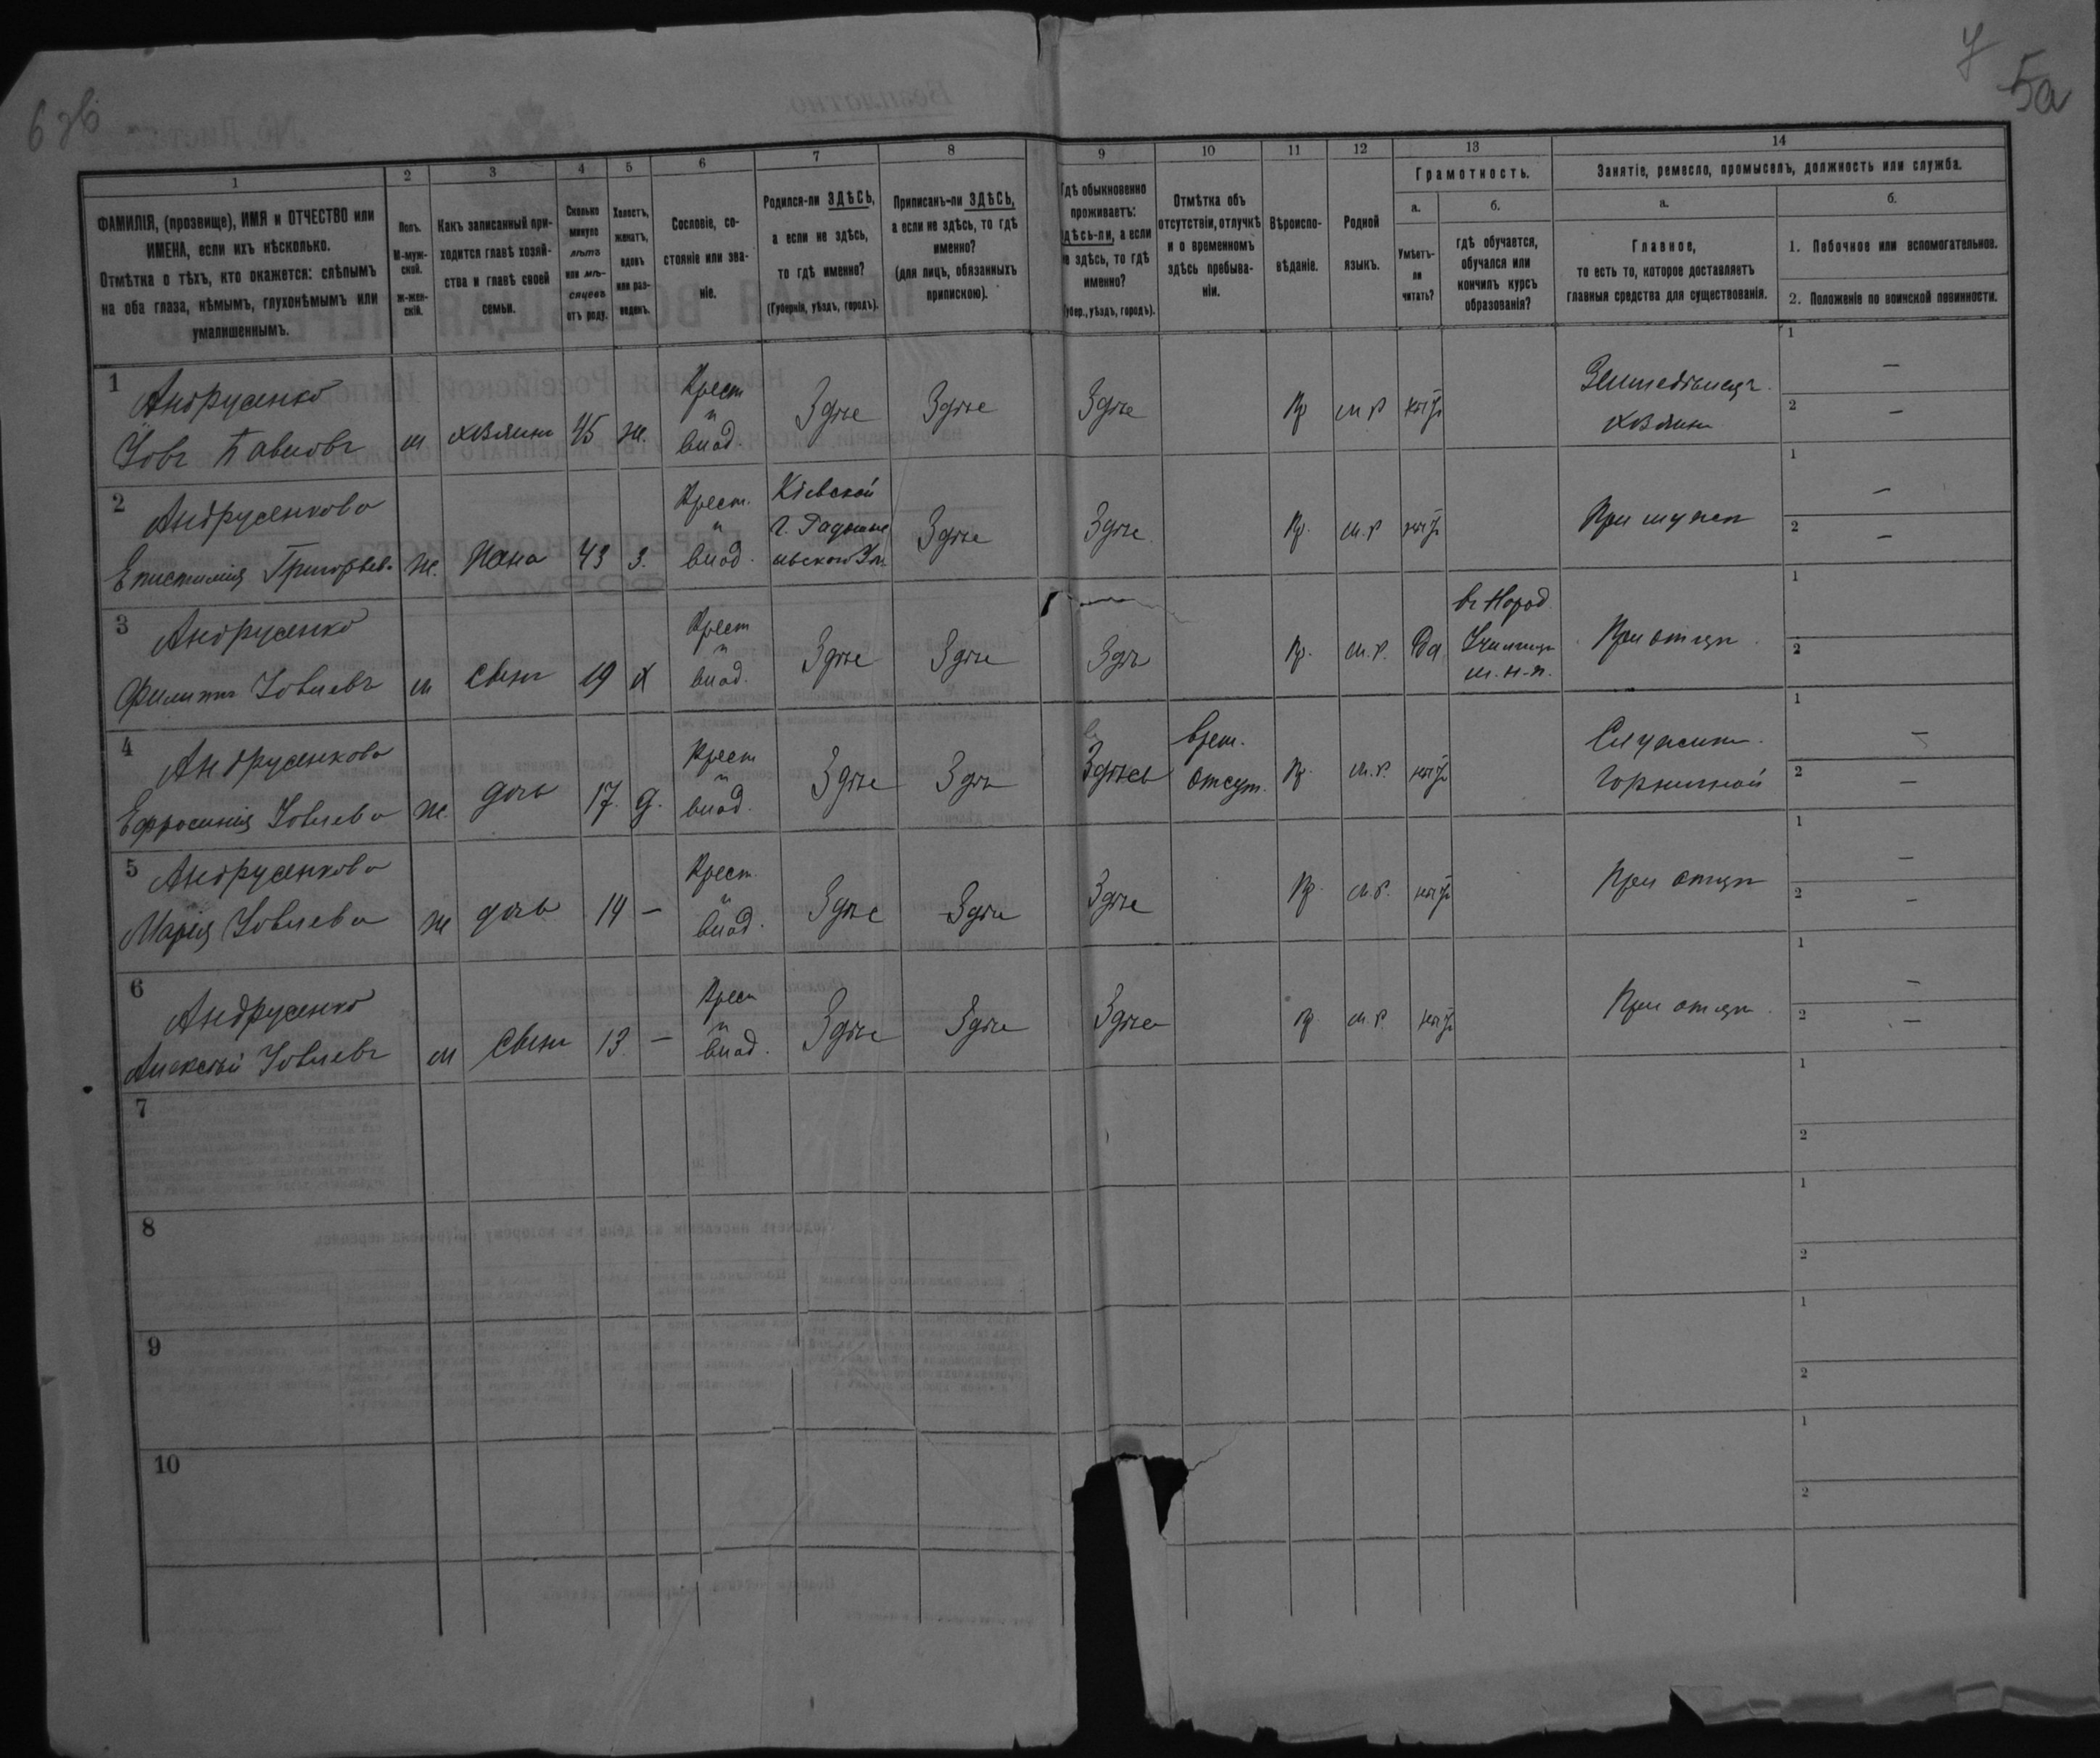 7
5а
1
2
3
4
5
6
7
8
9
10
11
12
13
14
ФАМИЛІЯ, (прозвище), ИМЯ и ОТЧЕСТВО или
ИМЕНА, если ихъ нѣсколько.
Отмѣтка о тѣхъ, кто окажется: слѣпымъ
на оба глаза, нѣмымъ, глухонѣмымъ или
умалишеннымъ.
Полъ.
М-муж-
ской.
ж-жен-
скій.
Какъ записанный при-
ходится главѣ хозяй-
ства и главѣ своей
семьи.
Сколько
минуло
лѣтъ
или мѣ-
сяцевъ
отъ роду.
Холостъ,
женатъ,
вдовъ
или раз-
веденъ.
Сословіе, со-
стояніе или зва-
ніе.
Родился-ли ЗДѢСЬ,
а если не здѣсь,
то гдѣ именно?
(Губернія, уѣздъ, городъ).
Приписанъ-ли ЗДѢСЬ,
а если не здѣсь, то гдѣ
именно?
(для лицъ, обязанныхъ
припискою).
Гдѣ обыкновенно
проживаетъ:
здѣсь-ли, а если
не здѣсь, то гдѣ
именно?
(Губер., уѣздъ, городъ).
Отмѣтка объ
отсутствіи, отлучкѣ
и о временномъ
здѣсь пребыва-
ніи.
Вѣроиспо-
вѣданіе.
Родной
языкъ.
Грамотность.
а.
Умѣетъ-
ли
читать?
б.
гдѣ обучается,
обучался или
кончилъ курсъ
образованія?
Занятіе, ремесло, промыселъ, должность или служба.
а.
Главное,
то есть то, которое доставляетъ
главныя средства для существованія.
б.
1. Побочное или вспомогательное.
2. Положеніе по воинской повинности.
1
Андрусенко
Іовъ Павловъ
м
хозяинъ
45
ж.
Крест
и
влад.
Здѣсе
Здѣсе
Здѣсе
Пр
м.р.
нѣтъ
Земледѣлецъ.
хозяинъ
1 —
2 —
2
Андрусенкова
Епистимія Григорьева
ж.
Жена
43
з.
Крест.
и
влад.
Кіевской
г. Радомы
сльского Уѣз
Здѣсе
Здѣсе
Пр.
м.р
нѣтъ
При мужѣ
1 —
2 —
3
Андрусенко
Филиппъ Іовлевъ
м
Сынъ
19
х
Крест
и
влад.
Здѣсе
Здѣсе
Здѣс
Пр.
м.р.
Да
въ Народ.
Училищѣ
м.н.п.
При отцѣ
1
2
4
Андрусенкова
Ефросинія Іовлева
ж.
дочь
17.
д.
Крест
и
влад
Здѣсе
Здѣс
Здѣсь
врем.
отсут.
Пр.
м.р.
нѣтъ
Служитъ
горничной
1 —
2 —
5
Андрусенкова
Марія Іовлева
ж
дочь
14
—
Крест.
и
влад.
Здѣсе
Здѣсе
Здѣсе
Пр.
м.р.
нѣтъ
При отцѣ
1 —
2 —
6
Андрусенко
Алексѣй Іовлевъ
м
Сынъ
13
—
Крест
и
влад.
Здѣсе
Здѣсе
Здѣсе
Пр.
м.р.
нѣтъ
При отцѣ
1 —
2 —
7
1
2
8
1
2
9
1
2
10
1
2